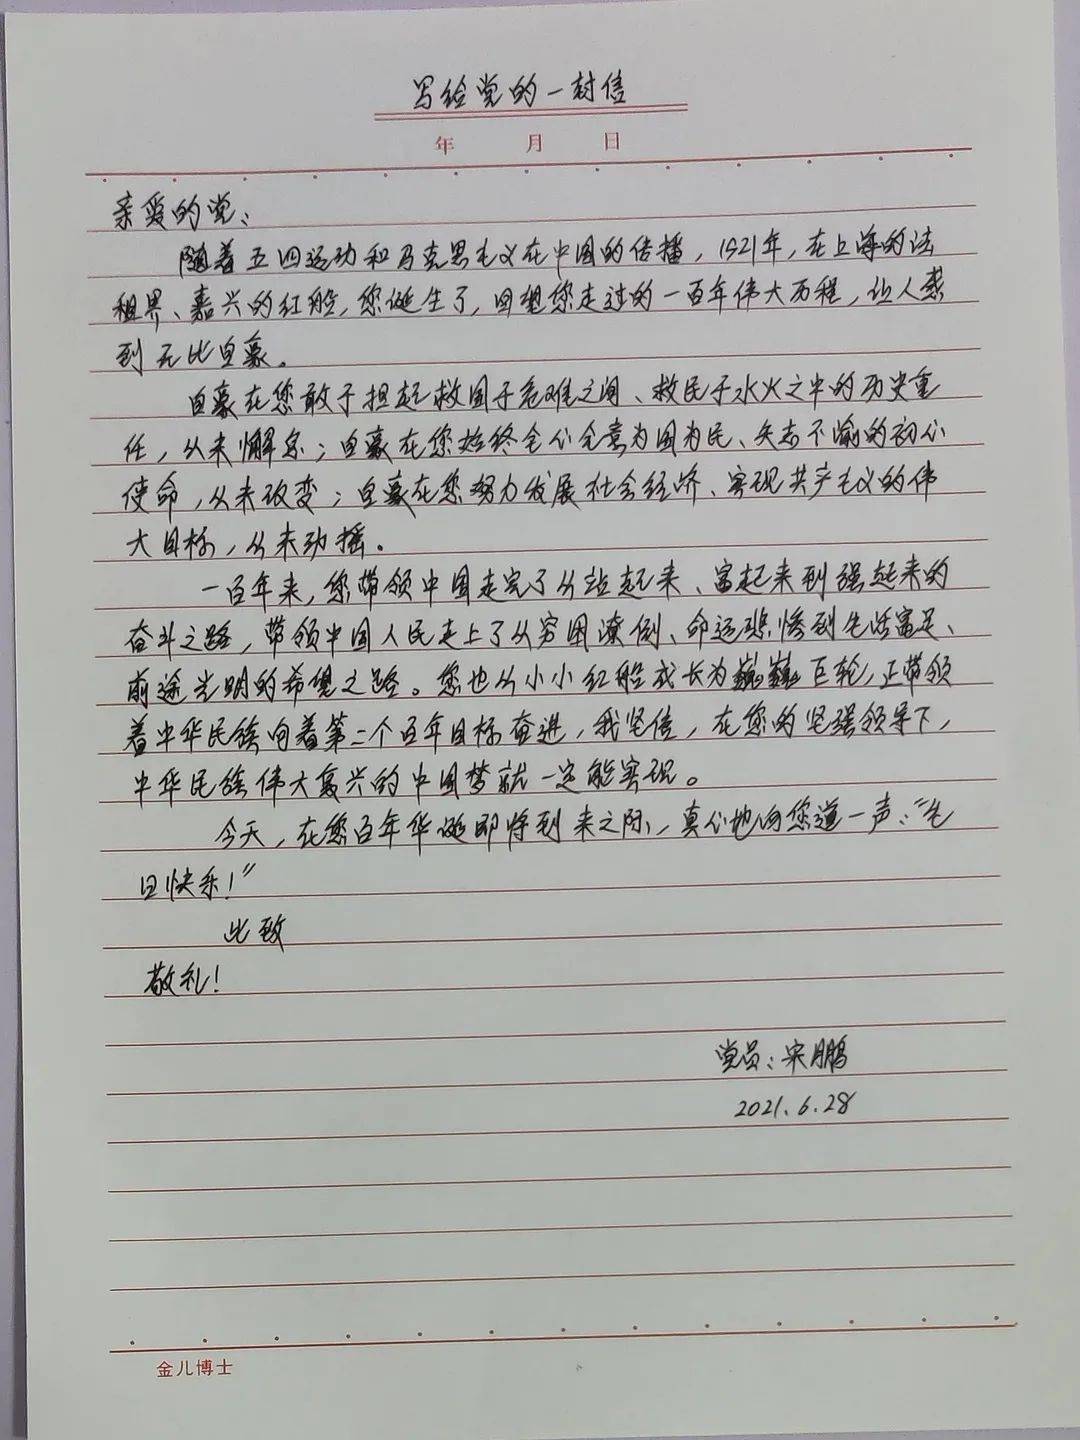 写给党的一封信
年 月 日
亲爱的党：
随着五四运动和马克思主义在中国的传播，1921年，在上海的法
租界、嘉兴的红船，您诞生了，回望您走过的一百年伟大历程，让人感
到无比自豪。
自豪在您敢于担起救国于危难之间、救民于水火之中的历史重
任，从未懈怠；自豪在您始终全心全意为国为民、矢志不渝的初心
使命，从未改变；自豪在您努力发展社会经济、实现共产主义的伟
大目标，从未动摇。
一百年来，您带领中国走完了从站起来、富起来到强起来的
奋斗之路，带领中国人民走上了从穷困潦倒、命运悲惨到生活富足、
前途光明的希望之路。您也从小小红船成长为巍巍巨轮，正带领
着中华民族向着第二个百年目标奋进，我坚信，在您的坚强领导下，
中华民族伟大复兴的中国梦就一定能实现。
今天，在您百年华诞即将到来之际，真心地向您道一声：“生
日快乐！”
此致
敬礼！
党员：宋鹏
2021.6.28
金儿博士